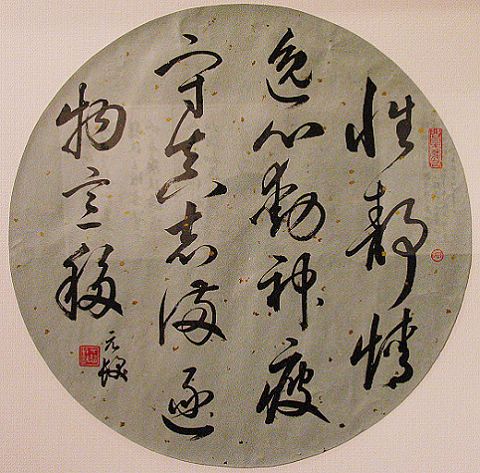 性靜情
逸心動神疲
守真志滿逐
物意移
元